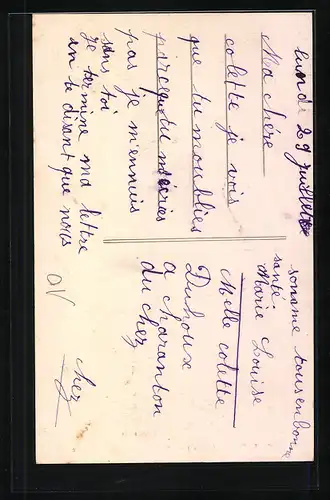 lundi 29 juillet
Ma chére
colette je vois
que tu moublies
parceque tu mécries
pas je m'ennuis
sans toi
Je termine ma lettre
en te disant que nous
somame tousenbonne
santé
Marie Louise
Melle colette
Duhoux
a charanton
du cher
cher